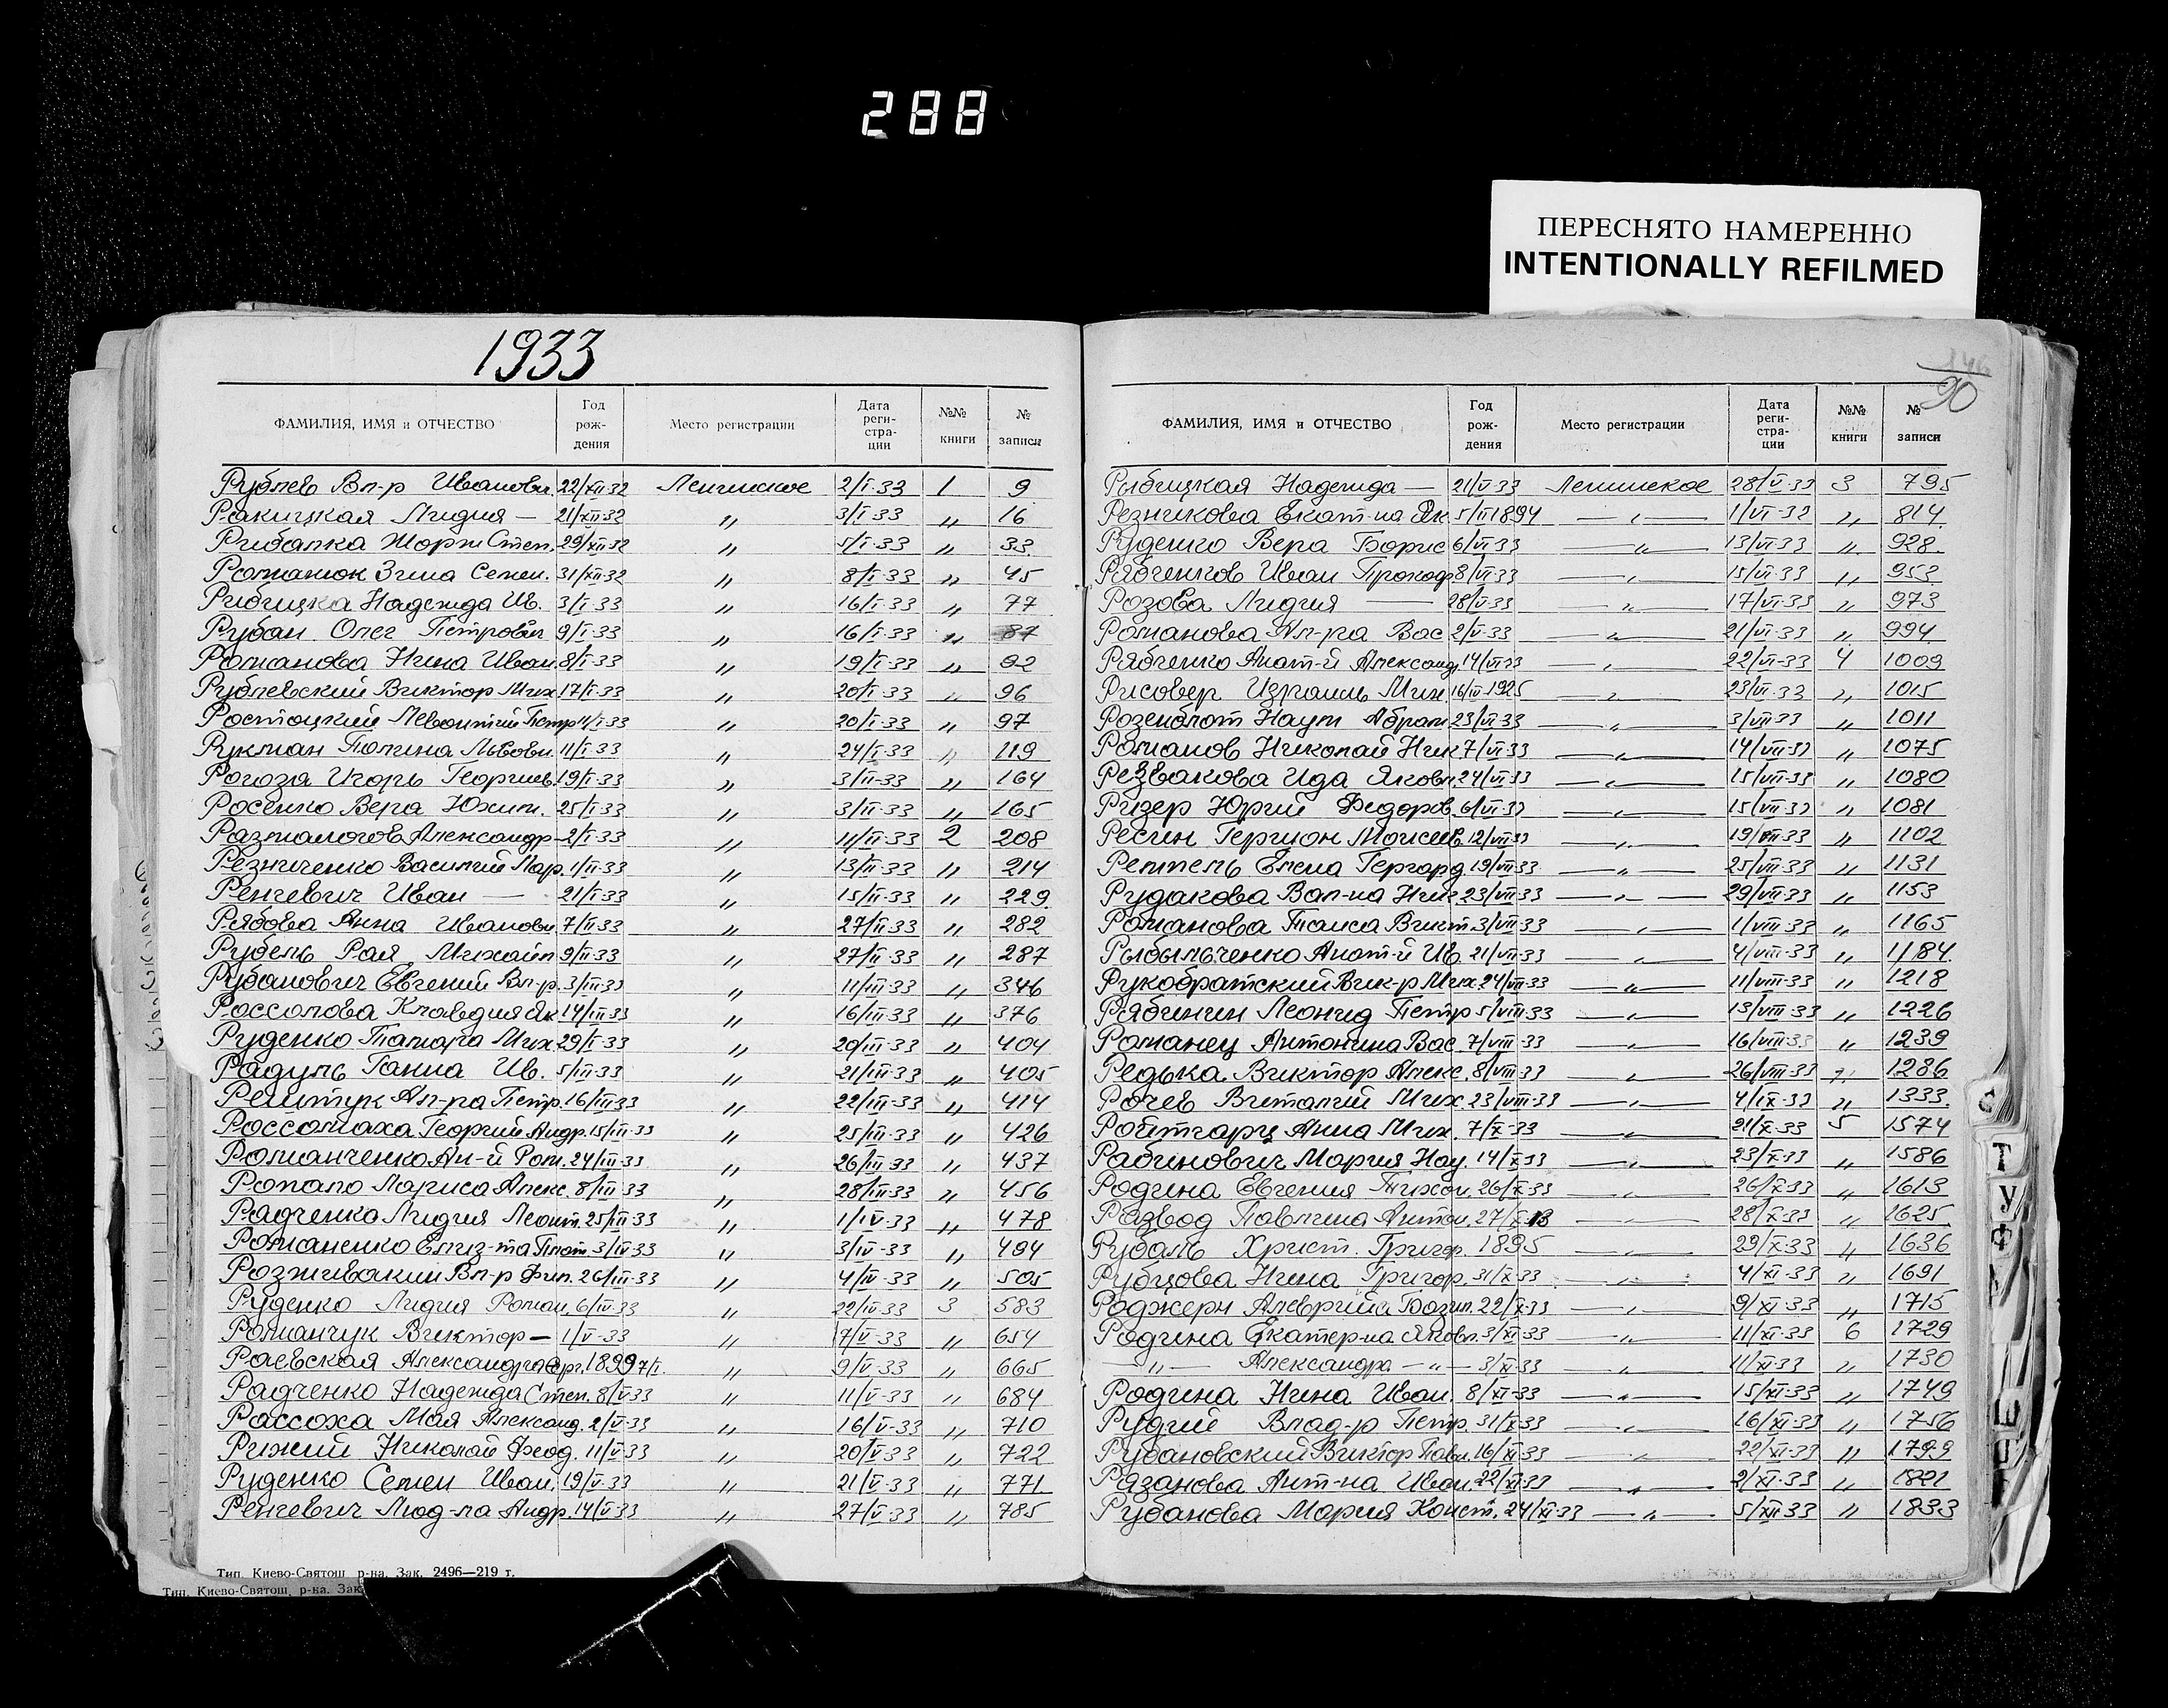 288
ПЕРЕСНЯТО НАМЕРЕННО
INTENTIONALLY REFILMED
1933
ФАМИЛИЯ, ИМЯ и ОТЧЕСТВО Год рождения Место регистрации Дата регистрации №№ книги № записи
Рублев Вл-р Иванович 22/XII-32 Ленинское 2/I-33 1 9
Ракицкая Лидия — 21/XII-32 〃 3/I-33 〃 16
Рибалка Жорж Степ. 29/XII-32 〃 5/I-33 〃 33
Романюк Зина Семен. 31/XII-32 〃 8/I-33 〃 45
Рибицка Надежда Ив. 3/I-33 〃 16/I-33 〃 77
Рубан Олег Петрович 9/I-33 〃 16/I-33 〃 87
Романова Нина Иван 8/I-33 〃 19/I-33 〃 92
Рублевский Виктор Мих 17/I-33 〃 20/I-33 〃 96
Ростоцкий Левонтий Петр 11/I-33 〃 20/I-33 〃 97
Рукман Полина Львовн. 11/I-33 〃 24/I-33 〃 119
Рогоза Игорь Георгиев. 19/I-33 〃 3/II-33 〃 164
Росенко Вера Юхим. 25/I-33 〃 3/II-33 〃 165
Александр — 2/I-33 〃 11/II-33 2 208
Резниченко Василий Мар. 1/II-33 〃 13/II-33 〃 214
Ренчевич Иван — 21/I-33 〃 15/II-33 〃 229
Рябова Анна Ивановн 7/II-33 〃 27/II-33 〃 282
Рубель Рая Михайл 9/II-33 〃 27/II-33 〃 287
Рубанович Евгений Вл-р. 3/III-33 〃 11/III-33 〃 346
Россолова Клавдия Як 14/III-33 〃 16/III-33 〃 376
Руденко Тамара Мих 29/I-33 〃 20/III-33 〃 404
Радуль Ганна Ив. 5/III-33 〃 21/III-33 〃 405
Рештук Ал-ра Петр. 16/III-33 〃 22/III-33 〃 414
Россомаха Георгий Андр. 15/III-33 〃 25/III-33 〃 426
Романченко Ан-й Ром. 24/III-33 〃 26/III-33 〃 437
Ропало Лариса Алекс. 8/III-33 〃 28/III-33 〃 456
Радченко Лидия Леонт. 25/III-33 〃 1/IV-33 〃 478
Романенко Елиз-та Плат 3/IV-33 〃 3/IV-33 〃 494
Розживакин Вл-р Фил. 26/III-33 〃 4/IV-33 〃 505
Руденко Лидия Роман. 6/IV-33 〃 22/IV-33 3 583
Романчук Виктор — 1/V-33 〃 7/V-33 〃 654
Раевская Александра 1899 7/I. 〃 9/V-33 〃 665
Радченко Надежда Степ. 8/V-33 〃 11/V-33 〃 684
Рассоха Мая Александ. 2/V-33 〃 16/V-33 〃 710
Рижий Николай Феод. 11/V-33 〃 20/V-33 〃 722
Руденко Семен Иван. 19/V-33 〃 21/V-33 〃 771
Ренчевич Люд-ла Андр. 14/V-33 〃 27/V-33 〃 785
Тип. Киево-Святош. р-на. Зак. 2496—219 т.
Тип. Киево-Святош. р-на. Зак
90
ФАМИЛИЯ, ИМЯ и ОТЧЕСТВО Год рождения Место регистрации Дата регистрации №№ книги № записи
Рибицкая Надежда — 21/V-33 Ленинское 28/V-33 3 795
Резникова Екат-на Як 5/II 1894 — 〃 — 1/VI-33 〃 814
Руденко Вера Борис 6/VI-33 — 〃 — 13/VI-33 〃 928
Рябченков Иван Прокоф 8/VI-33 — 〃 — 15/VI-33 〃 953
Розова Лидия — 28/V-33 — 〃 — 17/VI-33 〃 973
Романова Ал-ра Вас 2/V-33 — 〃 — 21/VI-33 〃 994
Рябченко Анат-й Александ. 14/VI-33 — 〃 — 22/VI-33 4 1009
Рисовер Израиль Мих. 16/IV-1925 — 〃 — 23/VI-33 〃 1015
Розенблат Наум Абрам 23/VI-33 — 〃 — 3/VII-33 〃 1011
Романов Николай Ник 7/VI-33 — 〃 — 14/VII-33 〃 1075
Резвакова Ида Яковл. 24/VI-33 — 〃 — 15/VII-33 〃 1080
Ризер Юрий Федоров. 6/VI-33 — 〃 — 15/VII-33 〃 1081
Ресин Гершон Моисеев. 12/VII-33 — 〃 — 19/VII-33 〃 1102
Реппель Елена Гергард. 19/VII-33 — 〃 — 25/VII-33 〃 1131
Рудакова Вал-на Ник 23/VII-33 — 〃 — 29/VII-33 〃 1153
Романова Таиса Викт. 3/VII-33 — 〃 — 1/VIII-33 〃 1165
Рыбыльченко Анат-й Ив. 21/VII-33 — 〃 — 4/VIII-33 〃 1184
Рукобратский Вик-р Мих. 24/VII-33 — 〃 — 11/VIII-33 〃 1218
Рябинин Леонид Петр 5/VIII-33 — 〃 — 13/VIII-33 〃 1226
Романец Антонина Вас. 7/VIII-33 — 〃 — 16/VIII-33 〃 1239
Редька Виктор Алекс. 8/VIII-33 — 〃 — 26/VIII-33 〃 1286
Рочев Виталий Мих. 23/VIII-33 — 〃 — 4/IX-33 〃 1333
Ройтгарц Анна Мих. 7/X-33 — 〃 — 21/X-33 5 1574
Рабинович Мария Нау. 14/X-33 — 〃 — 23/X-33 〃 1586
Родина Евгения Тихон. 26/X-33 — 〃 — 26/X-33 〃 1613
Развод Павлина Антон. 27/X-33 — 〃 — 28/X-33 〃 1625
Рубаль Христ. Григор. 1895 — 〃 — 29/X-33 〃 1636
Рубцова Нина Григор. 31/X-33 — 〃 — 4/XI-33 〃 1691
Роджерн 22/X-33 — 〃 — 9/XI-33 〃 1715
Родина Екатер-на Яковл. 3/XI-33 — 〃 — 11/XI-33 6 1729
— 〃 — Александра — 〃 — 3/XI-33 — 〃 — 11/XI-33 〃 1730
Родина Нина Иван. 8/XI-33 — 〃 — 15/XI-33 〃 1749
Рудий Влад-р Петр. 31/X-33 — 〃 — 16/XI-33 〃 1756
Рубановский Виктор Павл. 16/XI-33 — 〃 — 22/XI-33 〃 1799
Рязанова Ант-на Иван. 22/XI-33 — 〃 — 2/XI-33 〃 1821
Рубанова Мария Конст. 24/XI-33 — 〃 — 5/XII-33 〃 1833
С
Т
У
Ф
Ш